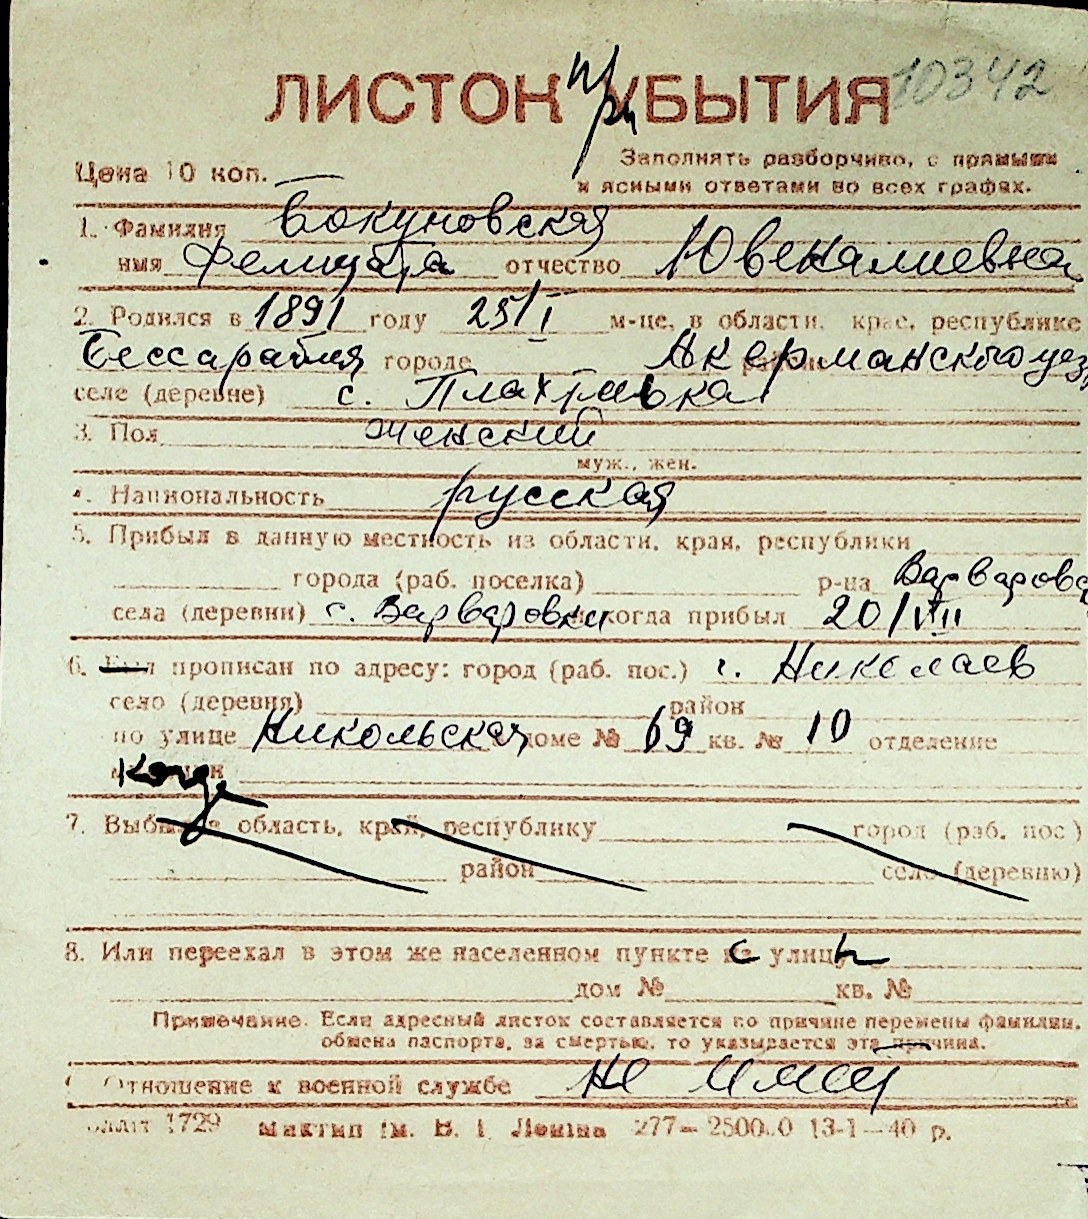 10342
ЛИСТОК при УБЫТИЯ
Цена 10 коп.
Заполнять разборчиво, с прямыми
и ясными ответами во всех графах.
1. Фамилия Бокуновская
имя Фелицата отчество Ювеналиевна
2. Родился в 1891 году 25/I м-це, в области, крае, республике
Бессарабия городе районе Акерманского уез
селе (деревне) с. Плахтиевка
3. Пол женский
муж., жен.
4. Национальность русская
5. Прибыл в данную местность из области, края, республики
города (раб. поселка) р-на Варваровс
села (деревни) с. Варваровки когда прибыл 20/VIII
6. Был прописан по адресу: город (раб. пос.) г. Николаев
село (деревня) район
по улице Никольская доме № 69 кв. № 10 отделение
7. Выбыл в область, край, республику город (раб. пос.)
район село (деревню)
8. Или переехал в этом же населенном пункте с улицы
дом № кв. №
Примечание. Если адресный листок составляется по причине перемены фамилии,
обмена паспорта, за смертью, то указывается эта причина.
Отношение к военной службе не имеет
1729 Миктип ім. В. І. Леніна 277— 13-1—40 р.